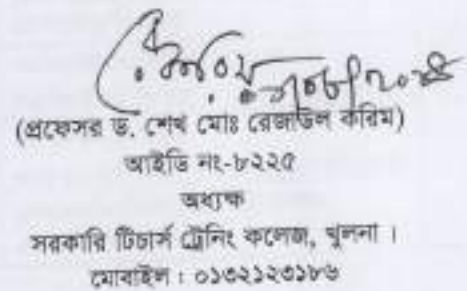 (প্রফেসর ড. শেখ মোঃ রেজাউল করিম)
আইডি নং-৮২২৫
অধ্যক্ষ
সরকারি টিচার্স ট্রেনিং কলেজ, খুলনা।
মোবাইল : ০১৩২১২৩১৮৬